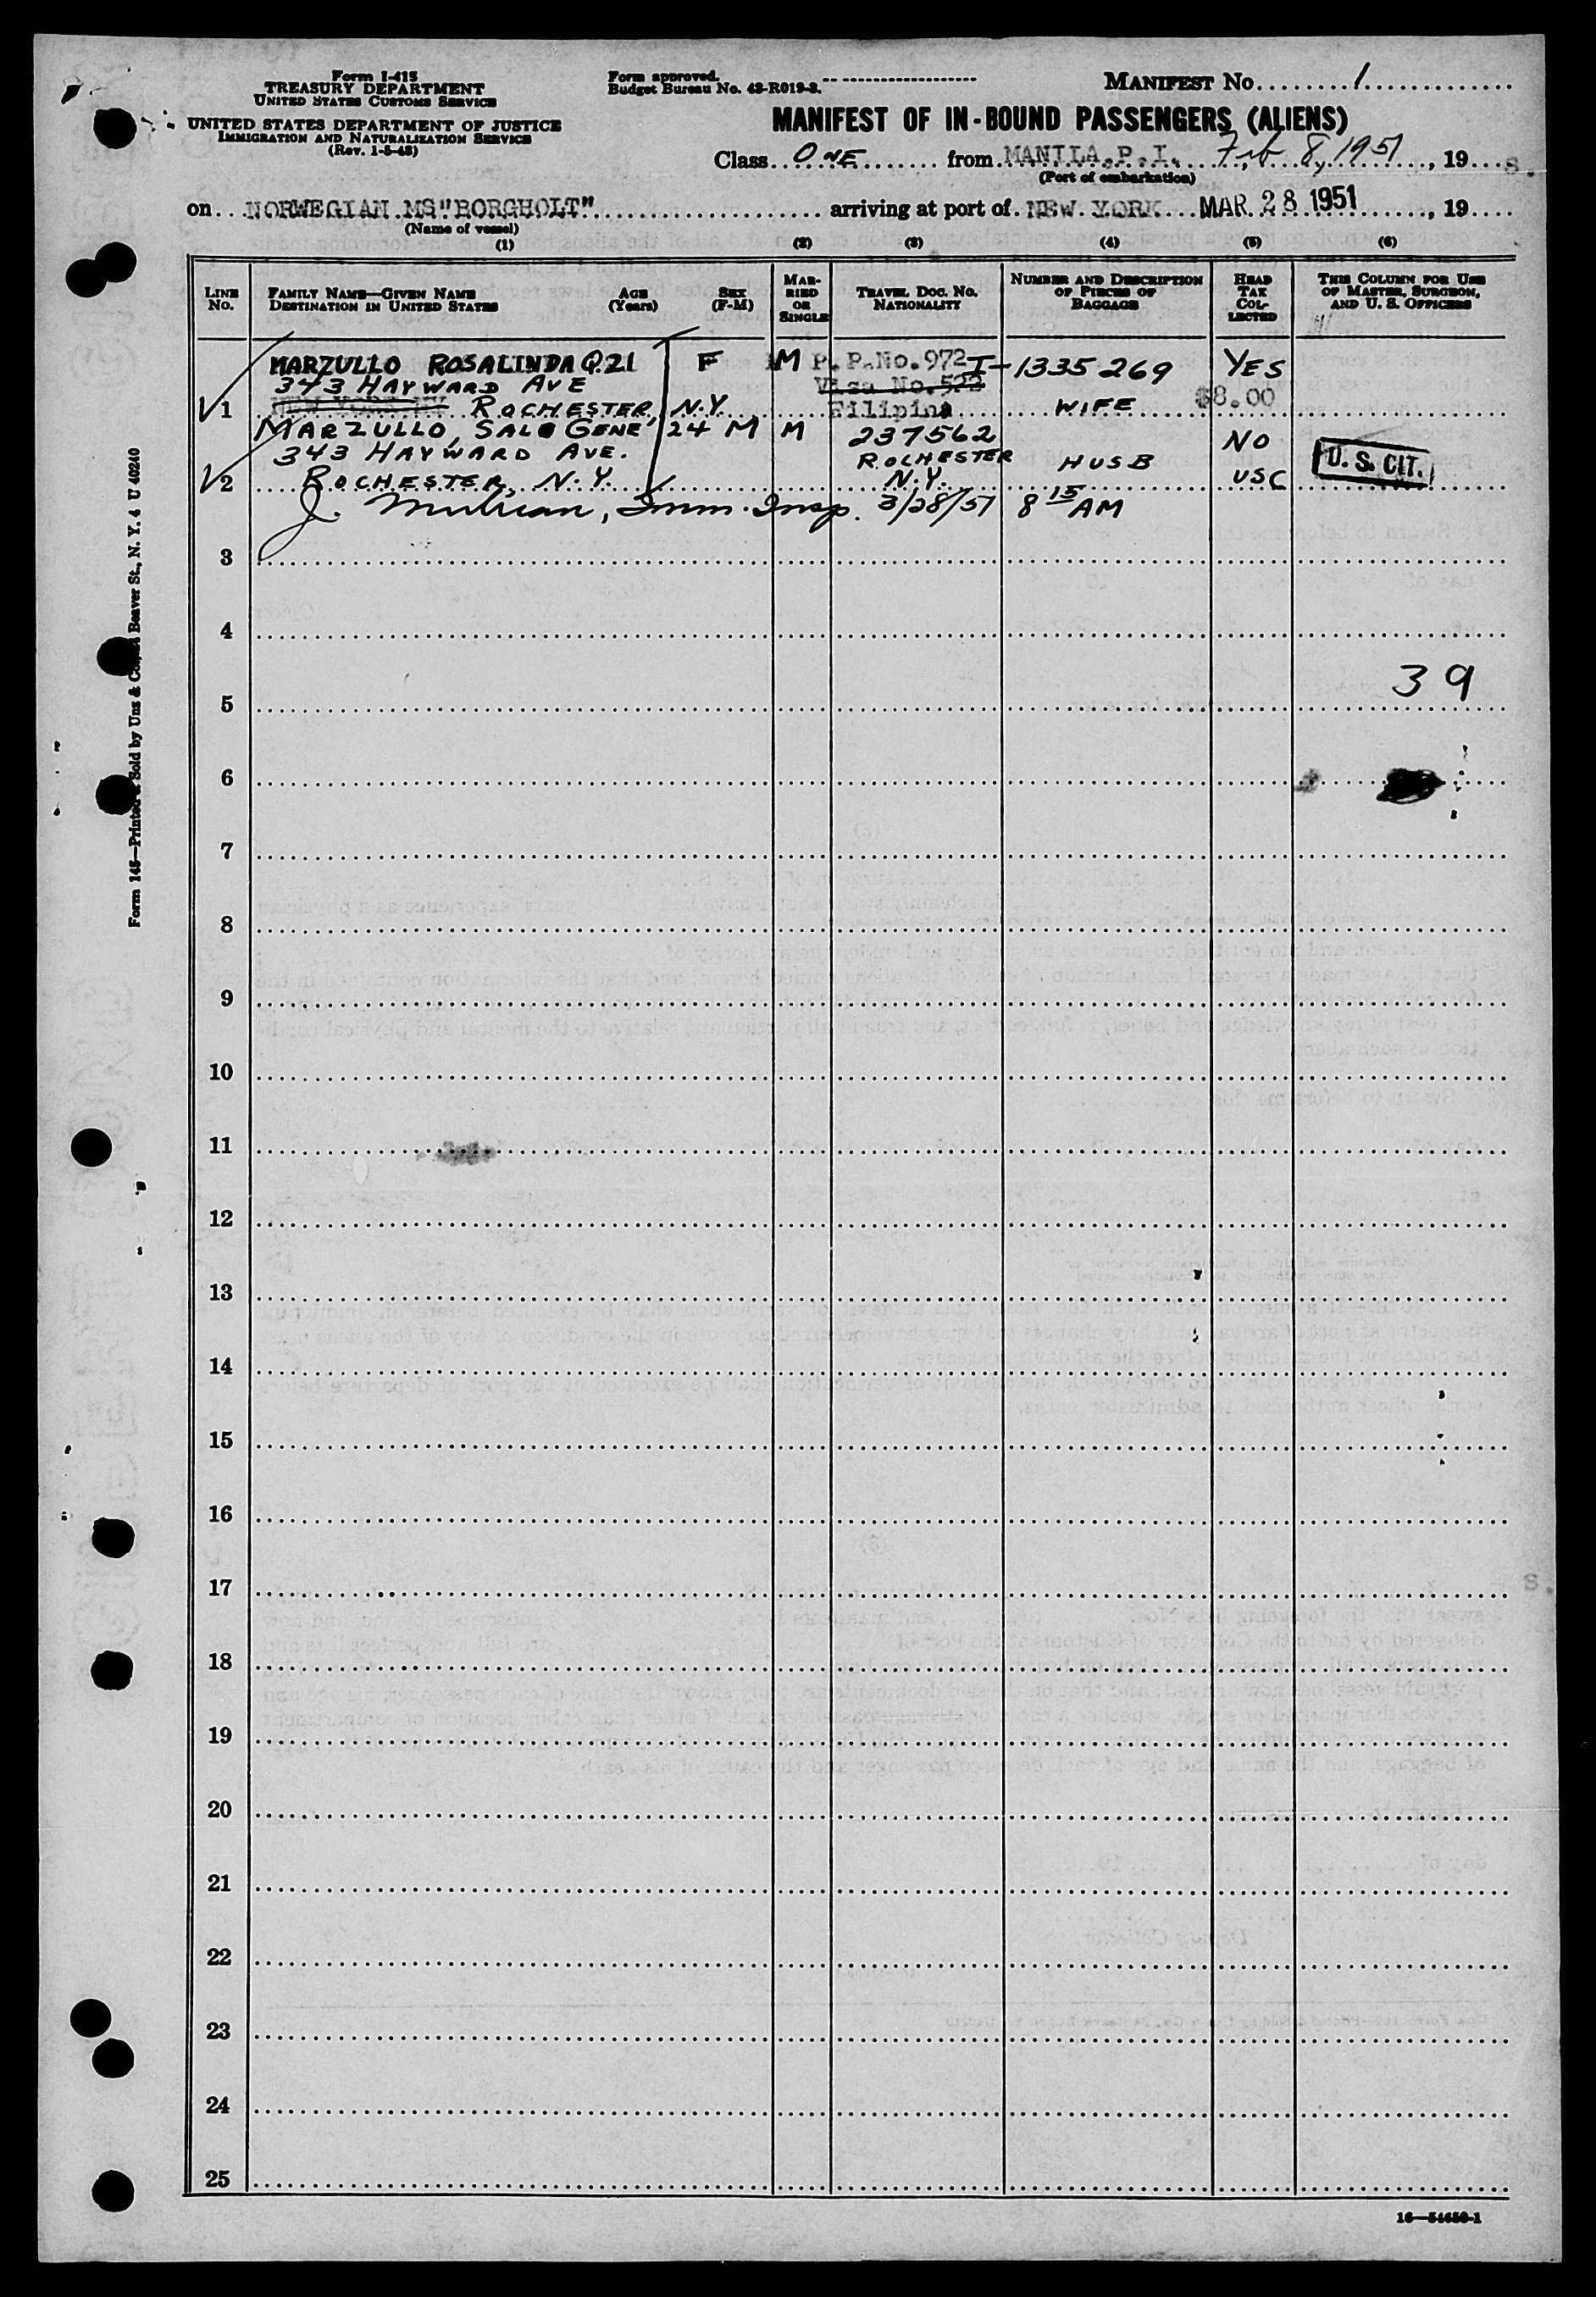 Form I-415
TREASURY DEPARTMENT
UNITED STATES CUSTOMS SERVICE
UNITED STATES DEPARTMENT OF JUSTICE
IMMIGRATION AND NATURALIZATION SERVICE
(Rev. 1-5-48)
Form approved.
Budget Bureau No. 43-R019-3.
MANIFEST No. 1
MANIFEST OF IN-BOUND PASSENGERS (ALIENS)
Class ONE from MANILA.P.I. Feb 8, 1951, 19 s.
(Port of embarkation)
on NORWEGIAN MS"BORGHOLT" arriving at port of NEW YORK MAR 28 1951, 19
(Name of vessel)
(1) (2) (3) (4) (5) (6)
LINE No.
FAMILY NAME—GIVEN NAME
DESTINATION IN UNITED STATES
AGE (Years)
SEX (F-M)
MARRIED OR SINGLE
TRAVEL DOC. NO.
NATIONALITY
NUMBER AND DESCRIPTION OF PIECES OF BAGGAGE
HEAD TAX COLLECTED
THIS COLUMN FOR USE OF MASTER, SURGEON, AND U. S. OFFICERS
MARZULLO ROSALINDA Q. 21 F M P.P.No.972 I-1335269 YES
343 HAYWARD AVE Visa No.522
1 NEW YORK.NY ROCHESTER, N.Y. Filipina WIFE $8.00
MARZULLO, SAL GENE 24 M M 237562 NO
343 HAYWARD AVE. ROCHESTER HUSB U.S. CIT.
2 ROCHESTER, N.Y. N.Y. USC
J. , Imm. Insp. 3/28/51 8 15 AM
3
4
39
5
6
7
8
9
10
11
12
13
14
15
16
17 s.
18
19
20
21
22
23
24
25
16—54650-1
Form 145—Printed & Sold by Unz & Co., Beaver St., N. Y. 4 U 40240